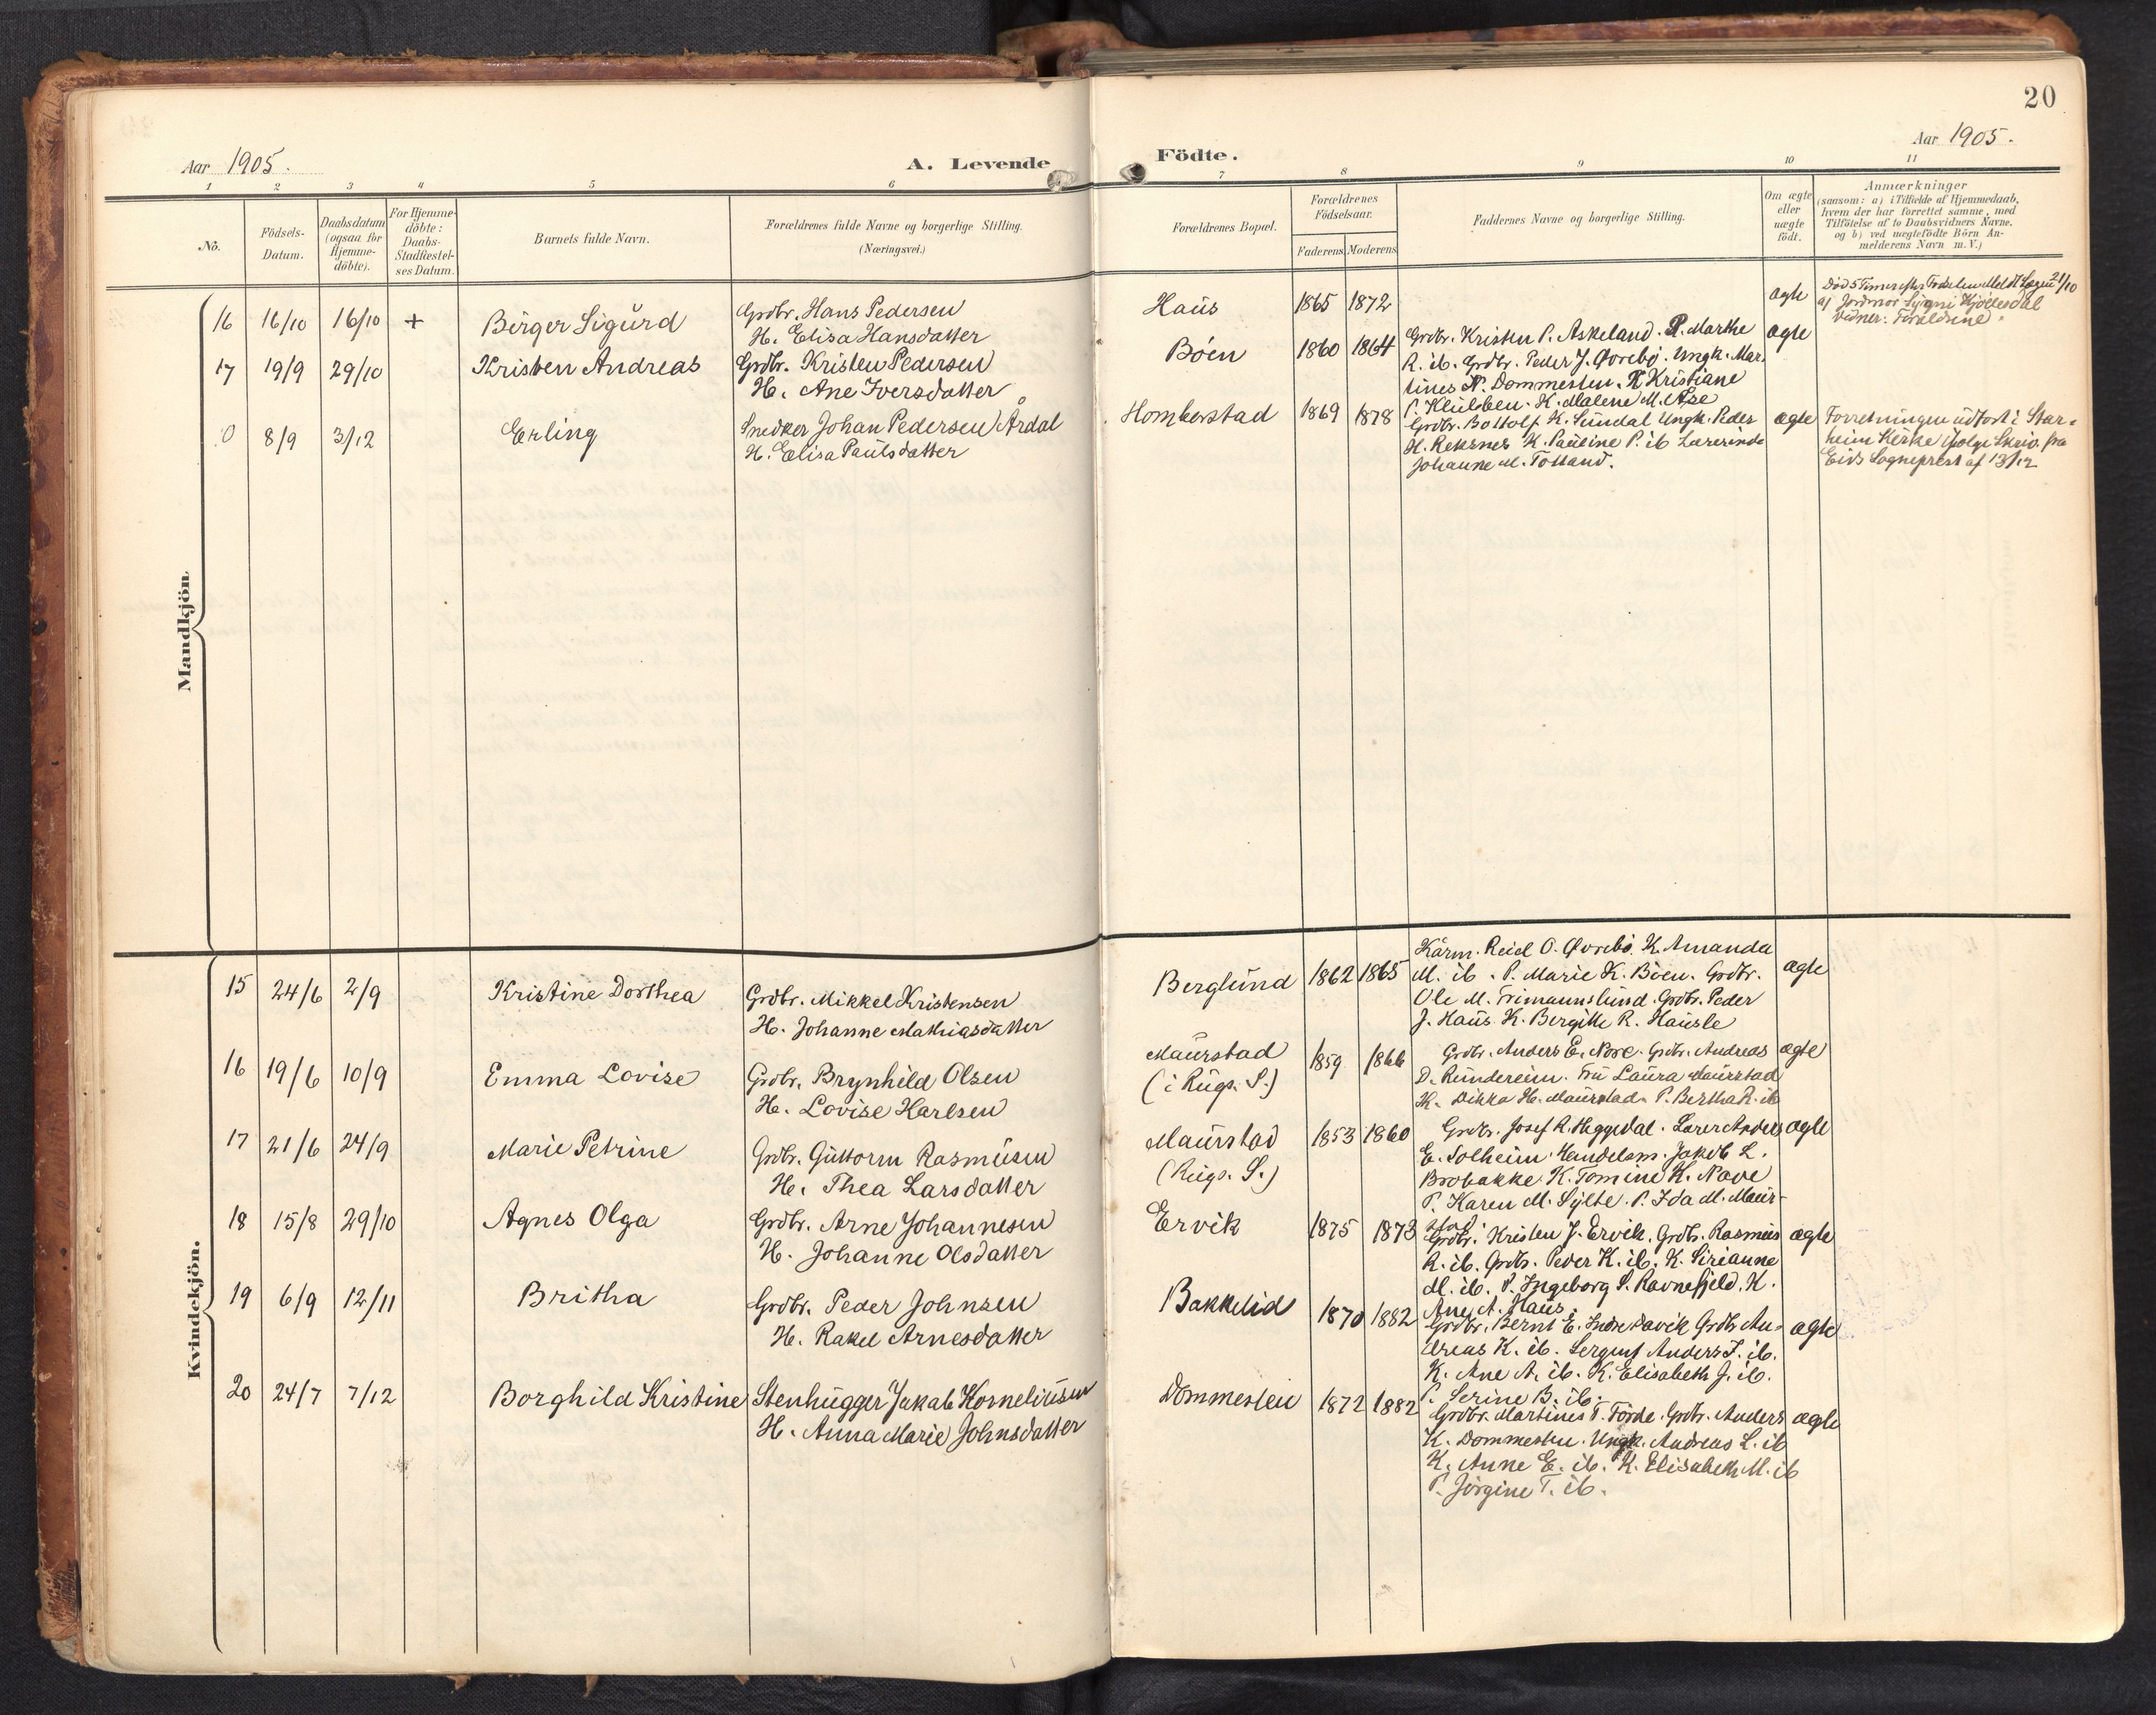 20
Aar 1905.
A. Levende
Födte.
Aar 1905.
1 2 3 4 5 6 7 8 9 10 11
No.
Födsels-
Datum.
Daabsdatum
(ogsaa for
Hjemme-
döbte).
For Hjemme-
döbte:
Daabs-
Stadfæstel-
ses Datum.
Barnets fulde Navn.
Forældrenes fulde Navne og borgerlige Stilling.
(Næringsvei.)
Forældrenes Bopæl.
Forældrenes
Födselsaar.
Faderens Moderens
Faddernes Navne og borgerlige Stilling.
Om ægte
eller
uægte
födt.
Anmærkninger
(saasom: a) i Tilfælde af Hjemmedaab,
hvem der har forrettet samme, med
Tilföielse af to Daabsvidners Navne,
og b) ved uægtefödte Börn An-
melderens Navn m. V.)
Mandkjön.
16 16/10 16/10 + Birger Sigurd
Grdbr. Hans Pedersen
H. Elisa Hansdatter
Haus 1865 1872
ægte
Død 5 Timer efter Fødselen Meldt 21/10
af Jordmor
Vidner: Forældrene.
17 19/9 29/10 Kristen Andreas
Grdbr. Kristen Pedersen
H. Ane Iversdatter
Böen 1860 1864
Grdbr. Kristen P. Askeland. P. Marthe
R. ib. Grdbr. Peder J. Övrebö. Ungk. Mar-
tines N. Dommesten. K. Kristiane
P. Kulben. K. Malene M.
ægte
0 8/9 3/12 Erling
Snedker Johan Pedersen Årdal
H. Elisa Paulsdatter
Homberstad 1869 1878
Grdbr. Bottolf K. Sundal Ungk. Peder
H. K. Pauline P. ib Lærerinde
Johanne M. Totland.
ægte
Forretningen udført i Star-
heim Kirke ifølge Skriv. fra
Eids Sogneprest af 13/12
Kvindekjön.
15 24/6 2/9 Kristine Dorthea
Grdbr. Mikkel Kristensen
H. Johanne Mathiasdatter
Berglund 1862 1865
Kårm. Reiel O. Övrebö. K. Amanda
M. ib. P. Marie K. Böen. Grdbr.
Ole M. Frimannslund. Grdbr. Peder
J. Haus. K. Bergitte R. Hausle
ægte
16 19/6 10/9 Emma Lovise
Grdbr. Brynhild Olsen
H. Lovise Harlsen
Maurstad
(i Rugs. S.)
1859 1866
Grdbr. Anders E. Nore. Grdbr. Andreas
D. Rundereim. Fru Laura Maurstad
K. Dikka H. Maurstad. P. Bertha R. ib
ægte
17 21/6 24/9 Marie Petrine
Grdbr. Guttorm Rasmusen
H. Thea Larsdatter
Maurstad
(Rugs. S.)
1853 1860
Grdbr. Josef R. Heggedal. Lærer Anders
E. Solheim. Handelsm. Jakob L.
Brobakke. K. Tomine K. Nave
P. Karen M. Sylte. P. Ida M. Maur-
stad.
ægte
18 15/8 29/10 Agnes Olga
Grdbr. Arne Johannesen
H. Johanne Olsdatter
Ervik 1875 1873
Grdbr. Kristen J. Ervik. Grdbr. Rasmus
R. ib. Grdbr. Peder K. ib. K. Sirianne
M. ib. P. Ingeborg S. Ravnefjeld. K.
Ane A. Haus.
ægte
19 6/9 12/11 Britha
Grdbr. Peder Johnsen
H. Rakel Arnesdatter
Bakkelid 1870 1882
Grdbr. Bernt E. Indre davik Grdbr. An-
dreas K. ib. Sergent Anders J. ib.
K. Ane A. ib. K. Elisabeth J. ib.
P. Serine B. ib.
ægte
20 24/7 7/12 Borghild Kristine
Stenhugger Jakob Korneliusen
H. Anna Marie Johnsdatter
Dommesten 1872 1882
Grdbr. Martines T. Förde. Grdbr. Anders
K. Dommesten. Ungk. Andreas L. ib
K. Anne E. ib. K. Elisabeth M. ib
P. Jörgine T. ib.
ægte